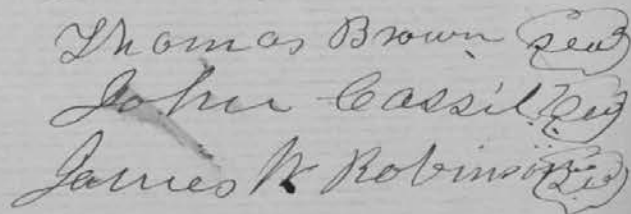 Thomas Brown Seal
John Cassil Seal
James W Robinson Seal